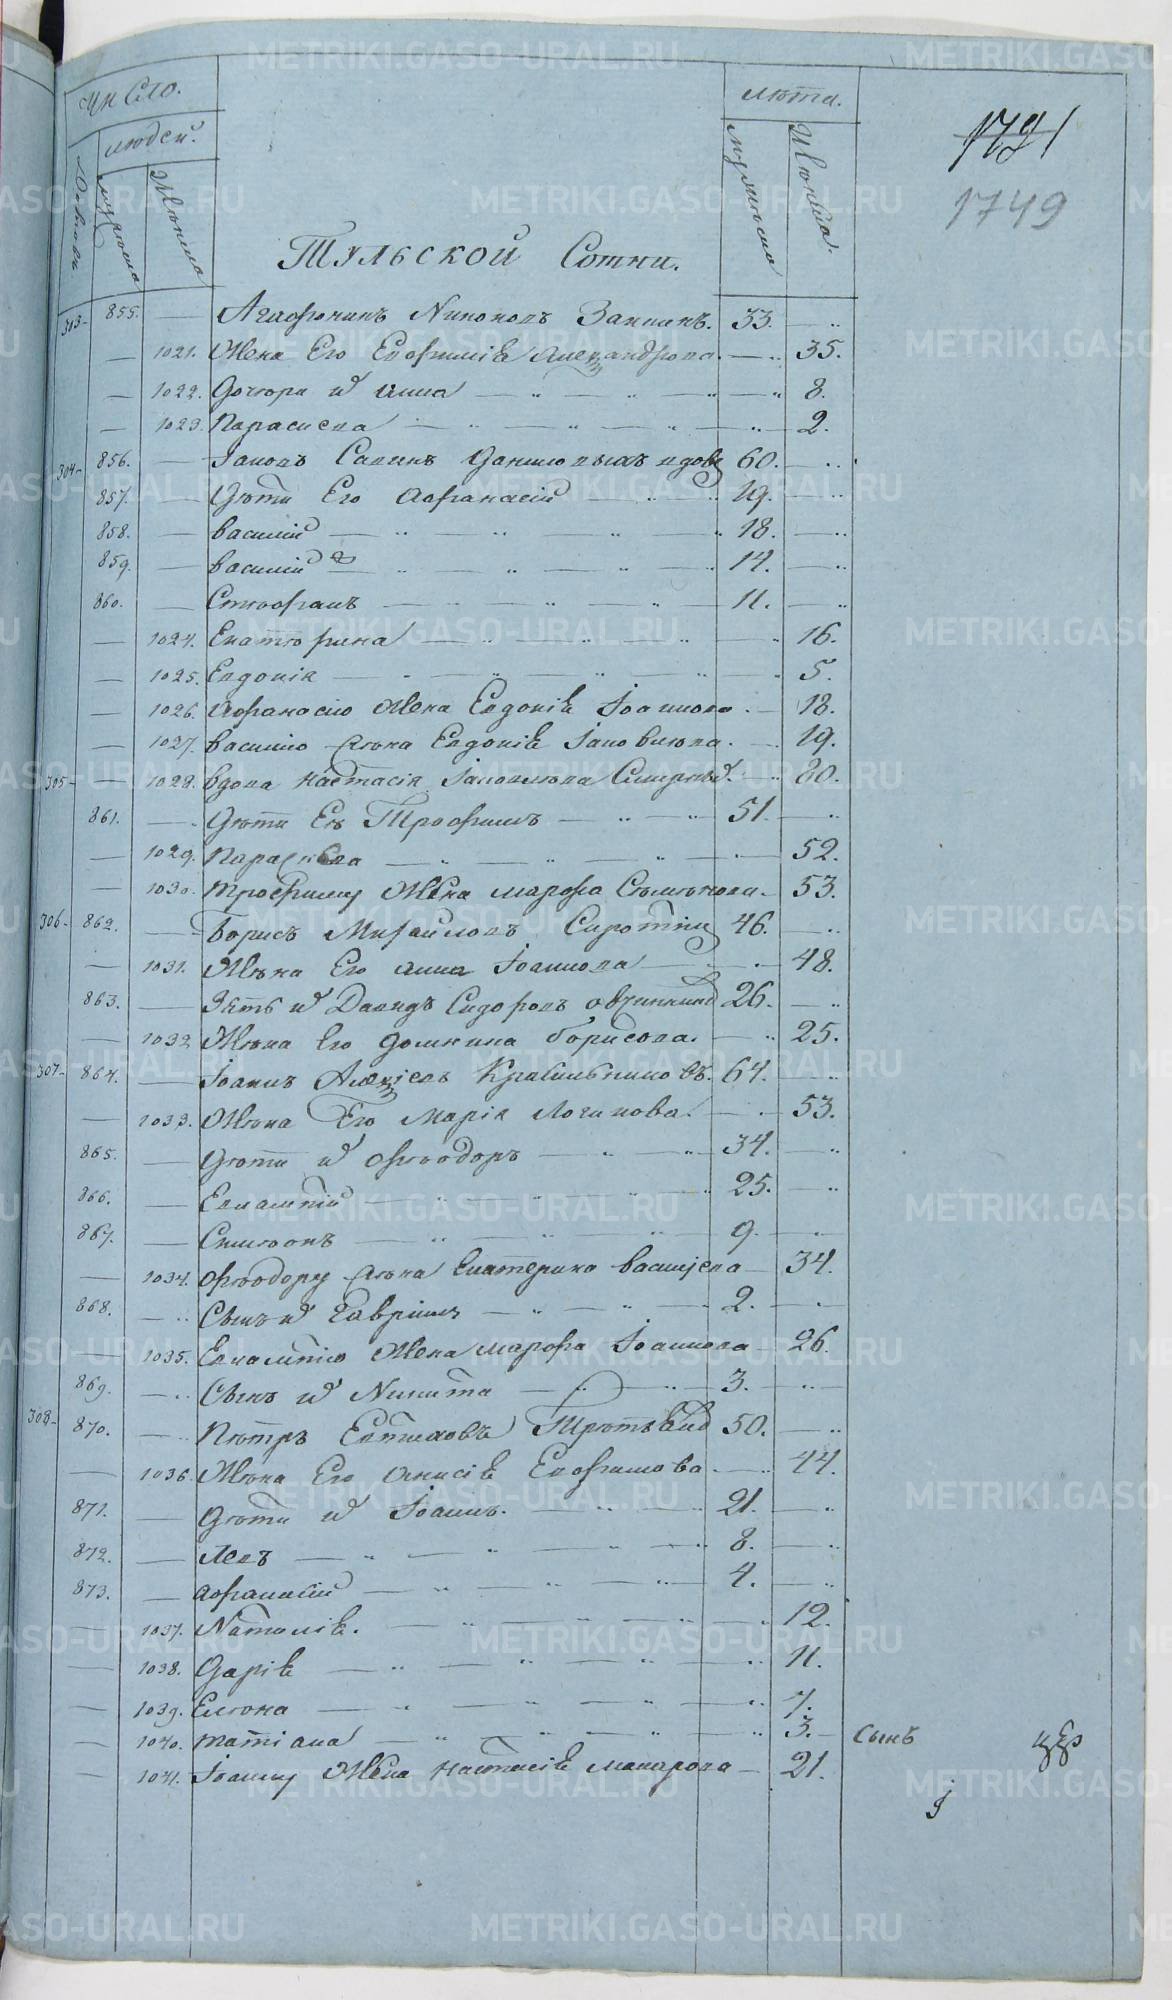 Число.
людей.
лѣта.
1721
1749
Тульской Сотни.
303 855. Агафоникъ Никоновъ Заикинъ. 33.
1021. Жена Его Евфимiя Александрова. 35.
1022. Дочери и Анна 8.
1023. Парасковiа 2.
304 856. Iаковъ Савинъ Даниловыхъ вдовъ 60.
857. Дѣти Его Афанасiй 19.
858. василiй 18.
859. василiй 2 14.
860. Стефанъ 11.
1024. Екатерина 16.
1025. Евдокiя 5.
1026. Афанасiю Жена Евдокiя Iоаннова 18.
1027. василiю жена Евдокiя Iаковлева. 19.
305 1028. вдова Настасiя Iаковлева 80.
861. Дѣти Ея Трофимъ 51.
1029. Параскева 52.
1030. трофиму Жена марфа Семенова. 53.
306 862. Борисъ Михайловъ Сиротин 46.
1031. Жена Его анна Iоаннова 48.
863. Зять и Давидъ Сидоровъ Овчинник 26.
1032 Жена Его Домникиа борисова. 25.
307 864. Iоаннъ Алексiевъ Красильниковъ. 64.
1033. Жена Его Марiя Логинова. 53.
865. Дѣти и Феодоръ 34.
866. Евлампiй 25.
867. Симеонъ 9.
1034. Феодору жена Екатерина васильева 34.
868. Сынъ и Гаврiилъ 2.
1035. Евлампiю Жена марфа Iоаннова 26.
869. Сынъ и Никита 3.
308 870. Петръ Евтихiовъ Третьяков 50.
1036. Жена Его Анисiя Евфимова. 44.
871. Дѣти и Iоаннъ. 21.
872. Левъ 8.
873. афанасiй 4.
1037. Наталiя. 12.
1038. Дарiя 11.
1039. Елена 7.
1040. татiана 3. Сынъ
1041. Iоанну Жена Настасiя макарова 21.